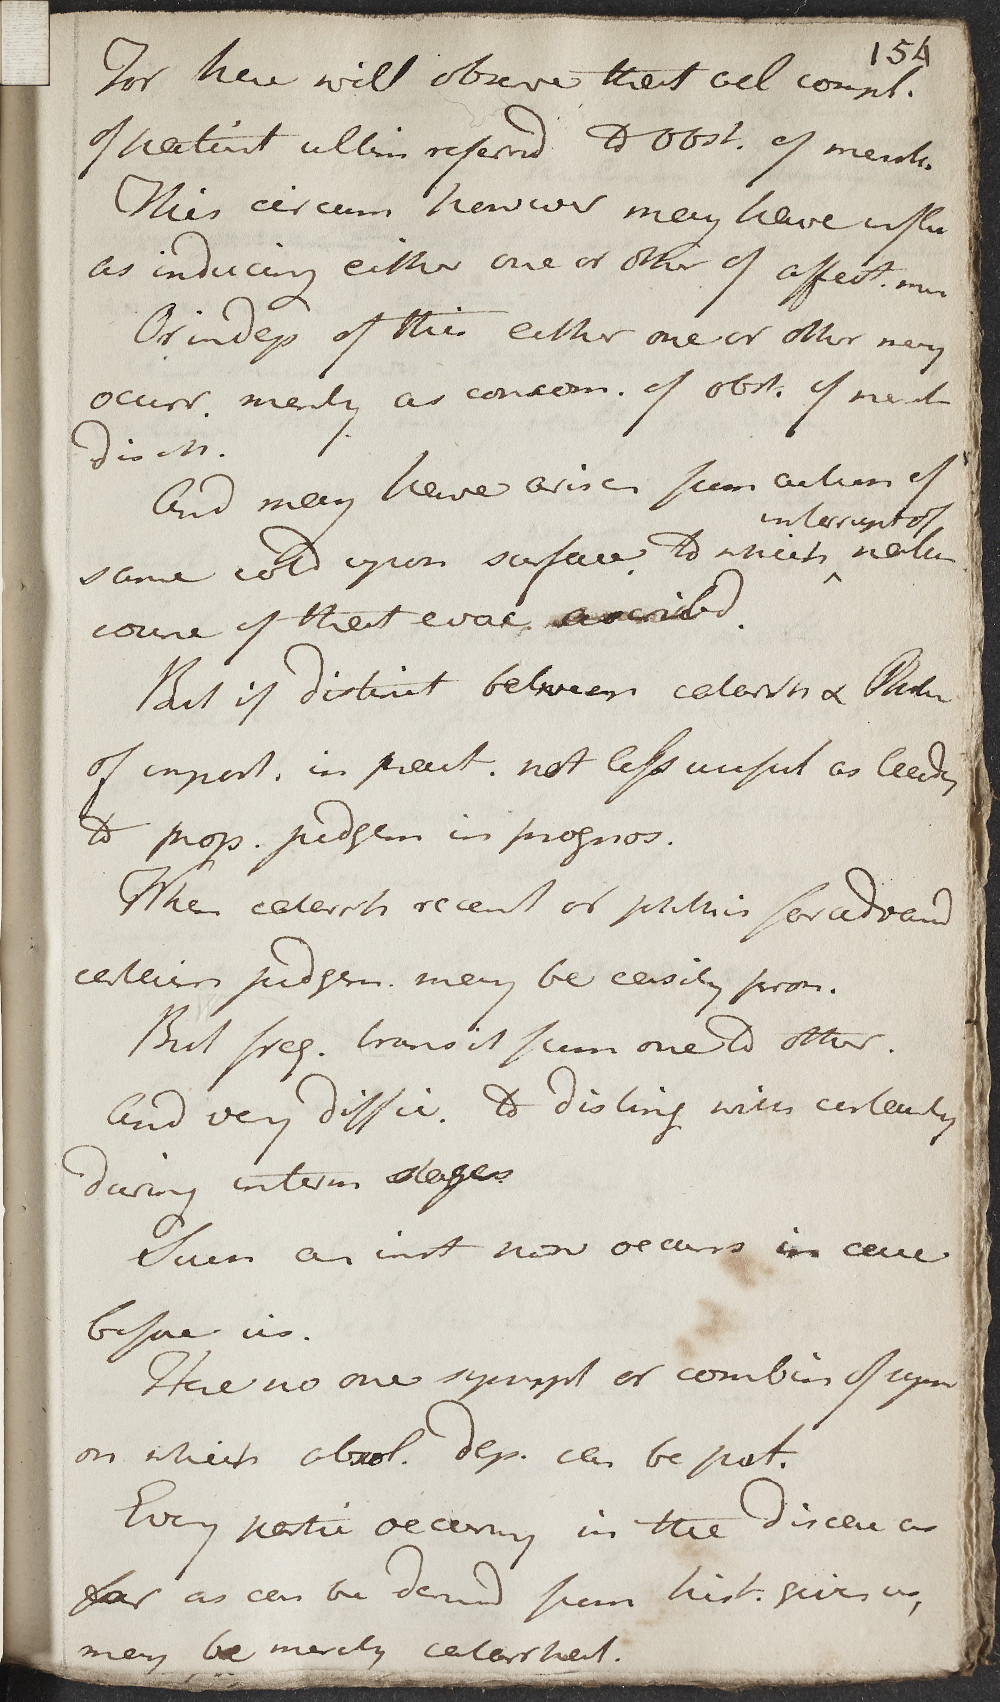 154
For here will observe that all compl.
of patient ultim referrd to obst. of menst.
This circum however may have influ
as inducing either one or other of affect. men
Or indep of this either one or other may
occurr. merely as concom. of obst. of menst
disch.
And may have arisen from action of
same cold upon surface. to which interrupt of natur
course of that evac. ascribd.
But if distinct between catarrh & Phthis
of import. in pract. not less useful as leadg
to prop. judgem in prognos.
When catarrh recent or phthis far advancd
certain judgem. may be easily pron.
But freq. transit from one to other.
And very diffic. to disting with certainty
during interm stages
Such an inst now occurs in case
before us.
Here no one sympt or combin of sym
on which absol. dep. can be put.
Every partic occurrng in the disease as
far as can be derivd from hist. given us,
may be merely catarrhal.